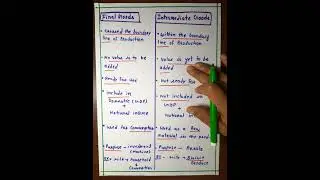 Final Goods
Intermediate Goods
• Crossed the boundary
line of Production
• Within the boundary
line of Production
• No value is to be
added
• Value is yet to be
added
• Ready for use
• Not ready for
• Include in
Domestic (GDP)
+
National income
• Not included in
GDP
+
National
• Used for Consumption
• Used as a Raw
material in the
• Purpose - investment
(machine)
• Purpose - Resale
Eg - milk - Household
+
Consumption
Eg - milk - Biscuit
Product